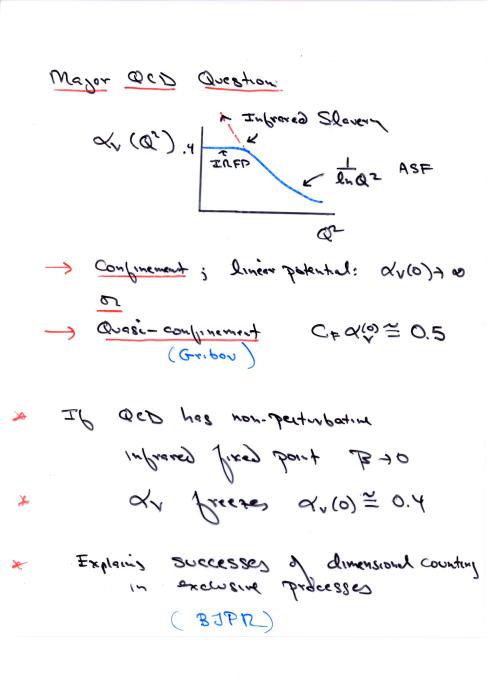 Major QCD Question
Infrared Slavery
αᵥ(Q²) .4
IRFP
1/lnQ² ASF
Q²
→ Confinement; linear potential: αᵥ(0)→∞
or
→ Quasi-confinement C_F αᵥ(0) ≅ 0.5
(Gribov)
* If QCD has non-perturbative
infrared fixed point β→0
* αᵥ freezes αᵥ(0) ≅ 0.4
* Explains successes of dimensional counting
in exclusive processes
(BJPR)